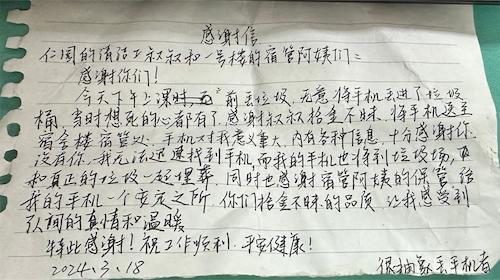 感谢信
仁园的清洁工叔叔和一号楼的宿管阿姨们：
感谢你们！
今天下午上课时，前丢垃圾，无意将手机丢进了垃圾
桶，当时想死的心都有了，感谢叔叔拾金不昧，将手机送至
宿舍楼宿管处，手机对我意义重大，内有各种信息，十分感谢你，
没有你，我无法迅速找到手机而我的手机也将到垃圾场，
和真正的垃圾一起埋葬，同时也感谢宿管阿姨的保管，给
我的手机一个安定之所，你们拾金不昧的品质，让我感受到
人间的真情和温暖
特此感谢！祝工作顺利，平安健康！
2024.3.18 很抽象丢手机者